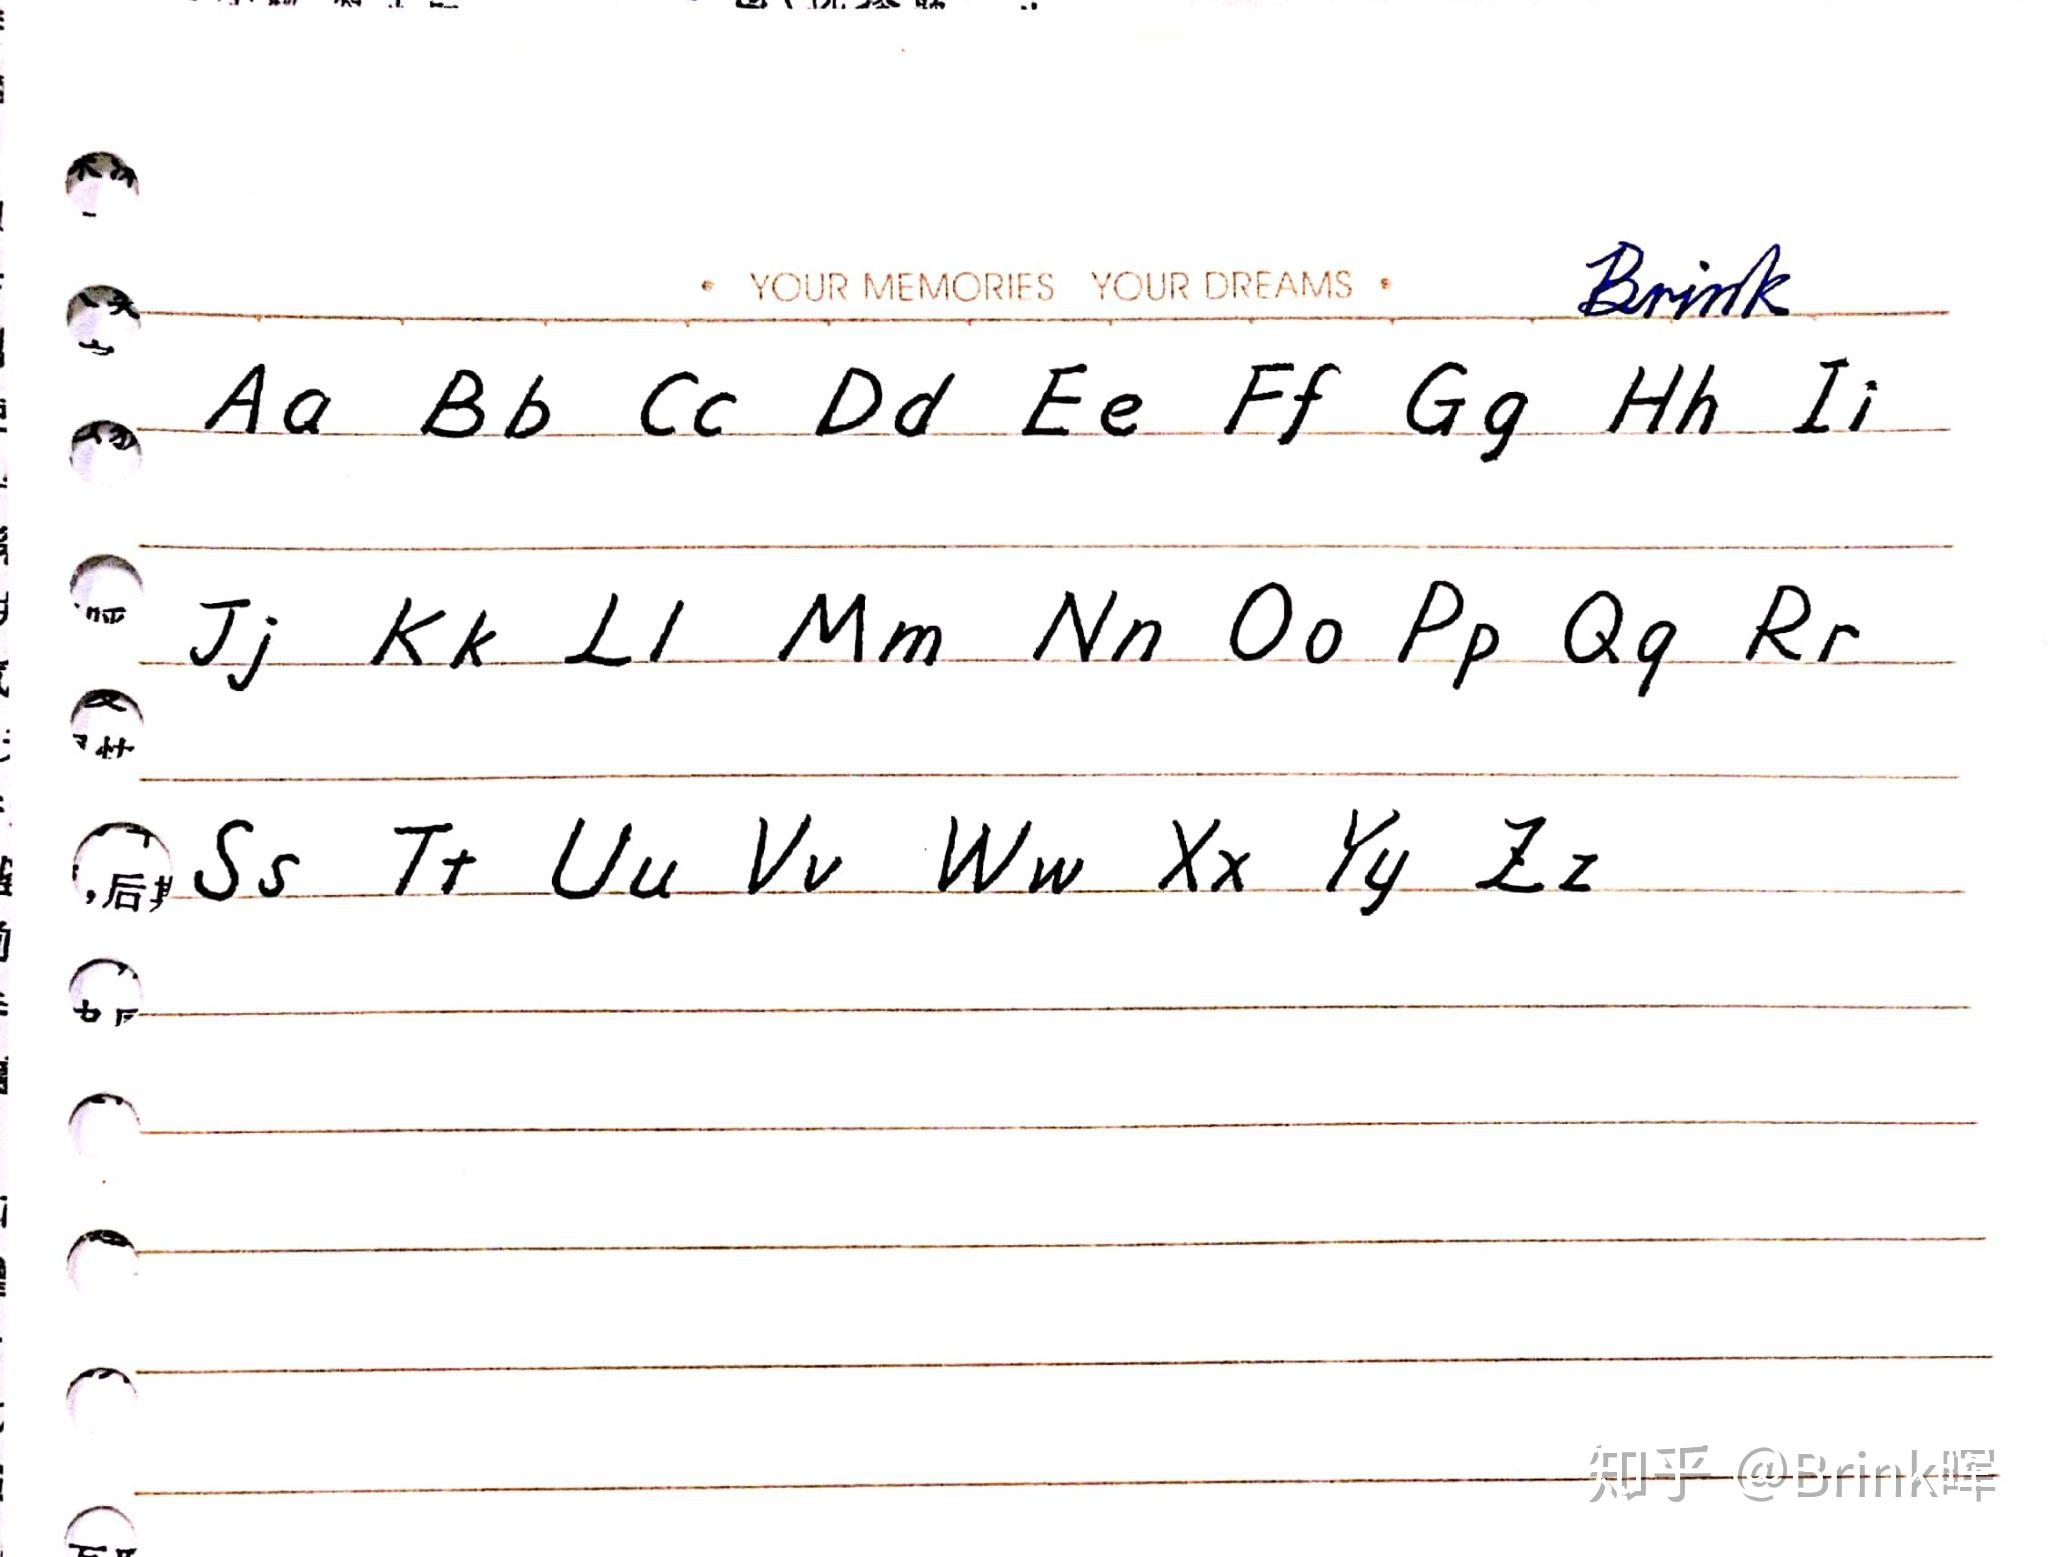 • YOUR MEMORIES YOUR DREAMS •
Brink
Aa Bb Cc Dd Ee Ff Gg Hh Ii
Jj Kk Ll Mm Nn Oo Pp Qq Rr
Ss Tt Uu Vv Ww Xx Yy Zz
,后
知乎 @Brink晖